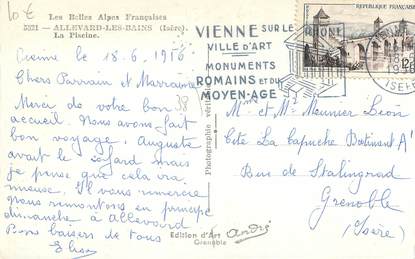 10 €
Les Belles Alpes Françaises
5321 - ALLEVARD-LES-BAINS (Isère).
La Piscine.
Vienne le 18.6.1956
Chers Parrain et Marraine
Merci de votre bon
accueil. Nous avons fait
bon voyage. Auguste
avait le cafard mais
je pense que cela va
mieux. Il vous remercie
nous remontons en principe
dimanche à Allevard
Bons baisers de tous
Elisa
38
VIENNE SUR LE
RHÔNE
VILLE D'ART
MONUMENTS
ROMAINS ET DU
MOYEN-AGE
REPUBLIQUE FRANÇAISE
12F
ISERE
Photographie véritable
Mme et Mr Meunier Léon
Cité La Capuche Bâtiment A
Rue de Stalingrad
Grenoble
(Isère)
Edition d'Art André
Grenoble